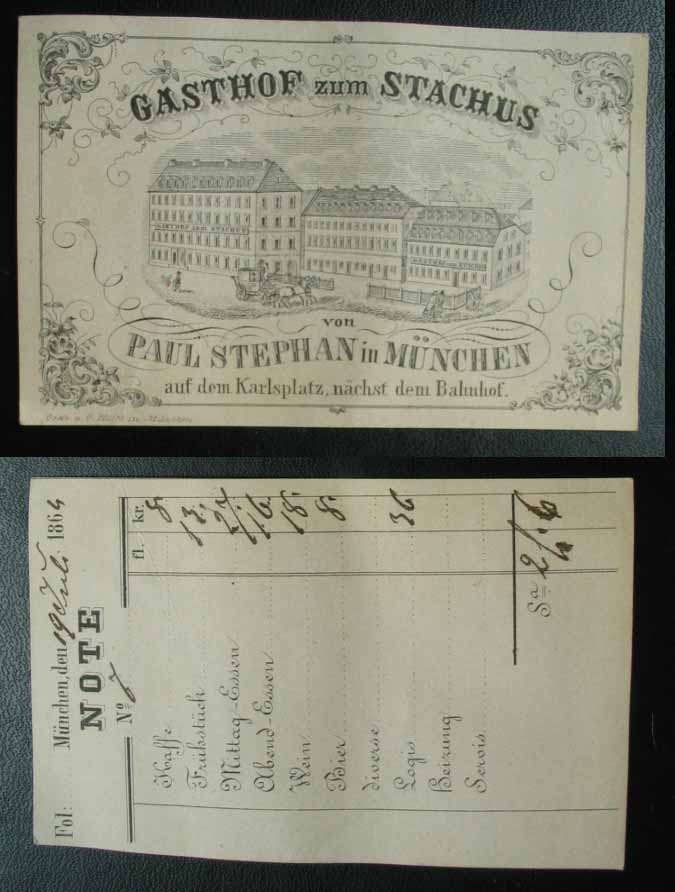 GASTHOF zum STACHUS
GASTHOF ZUM STACHUS
GASTHOF ZUM STACHUS
von
PAUL STEPHAN in MÜNCHEN
auf dem Karlsplatz, nächst dem Bahnhof.
in München
Fol:
München, den 19 Juli 1864
NOTE
No 7
fl. kr.
Kaffe 8.
Frühstück 12.
Mittag-Essen
Abend-Essen
Wein 18.
Bier 8.
diverse
Logis 36
Heizung
Servis
Sa 2